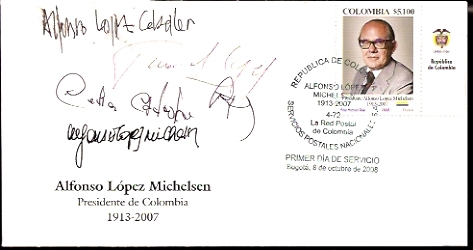 Alfonso Lopez
COLOMBIA $5.100
República
de Colombia
Presidente Alfonso López Michelsen
1913-2007
REPUBLICA DE COL
ALFONSO LÓPEZ
MICHELSEN
1913-2007
4-72
La Red Postal
de Colombia
SERVICIOS POSTALES NACIONALES S.A.
PRIMER DÍA DE SERVICIO
Bogotá, 8 de octubre de 2008
alfonso lopez michelsen
Alfonso López Michelsen
Presidente de Colombia
1913-2007